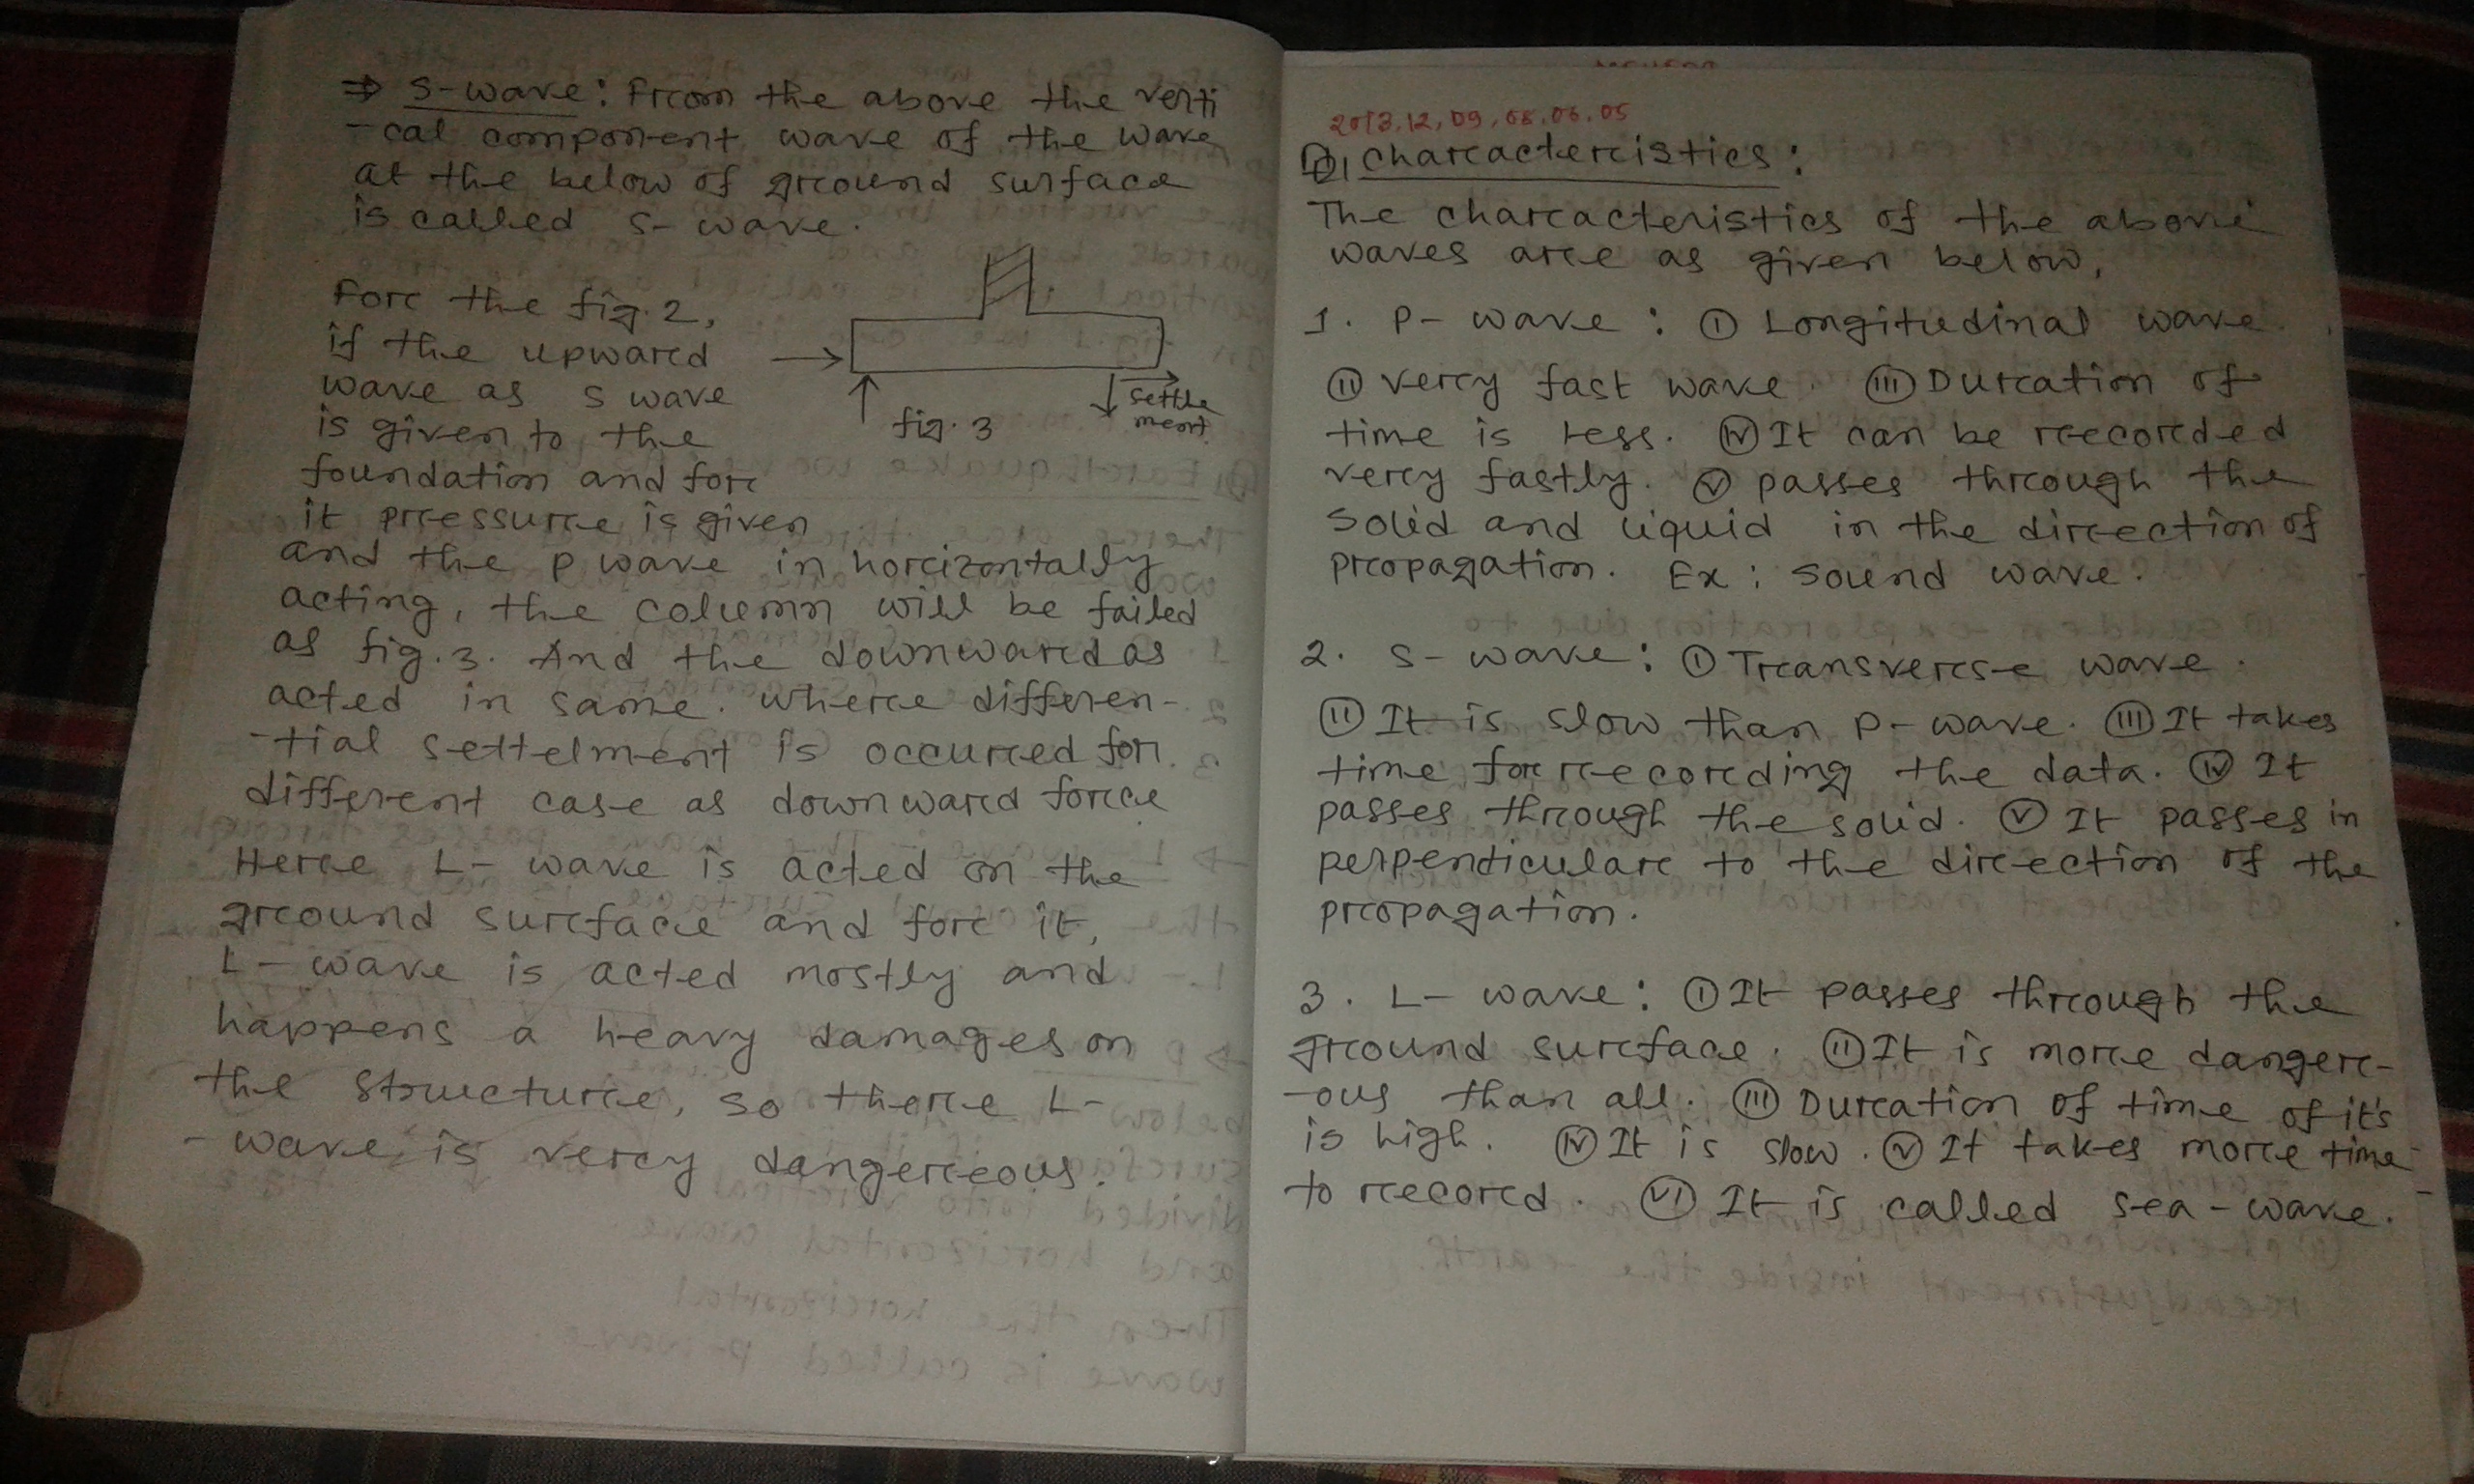 ⇒ S-wave: From the above the verti
-cal component wave of the wave
at the below of ground surface
is called s-wave.
For the fig.2,
if the upward
wave as s wave
is given to the
foundation and for
it pressure is given
and the p wave in horizontally
acting, the column will be failed
as fig.3. And the downward as
acted in same. Where differen-
-tial settelment is occurred for
different case as downward force
Here L- wave is acted on the
ground surface and for it,
L-wave is acted mostly and
happens a heavy damages on
the structure, so there L-
-wave is very dangereous.
settle
ment
fig. 3
2013,12,09,08,06,05
Characteristics:
The characteristics of the above
waves are as given below,
1. P-wave: (I) Longitudinal wave
(II) very fast wave. (III) Duration of
time is less. (IV) It can be recorded
very fastly. (V) passes through the
solid and liquid in the direction of
propagation. Ex: sound wave.
2. S-wave: (I) Transverse wave.
(II) It is slow than p-wave. (III) It takes
time for recording the data. (IV) It
passes through the solid. (V) It passes in
perpendicular to the direction of the
propagation.
3. L-wave: (I) It passes through the
ground surface. (II) It is more danger-
-ous than all. (III) Duration of time of it's
is high. (IV) It is slow. (V) It takes more time
to record. (VI) It is called sea-wave.